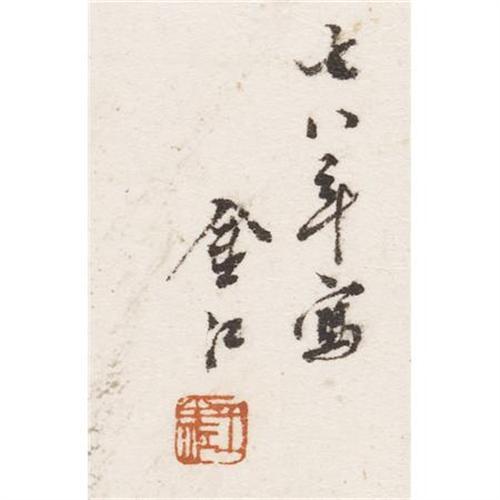 七八年寫
金江